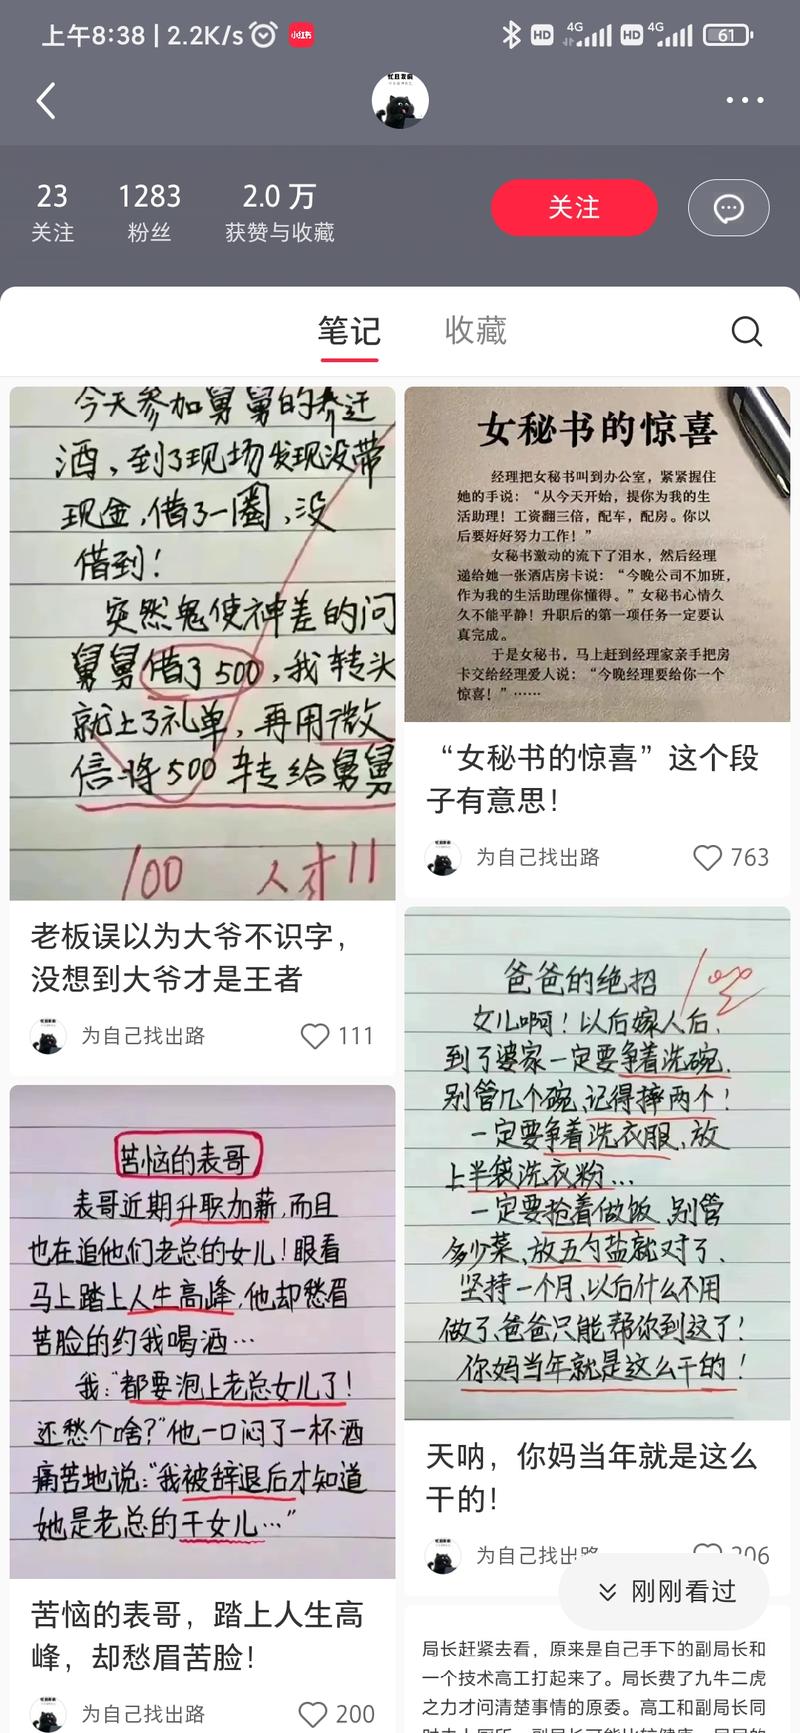 上午8:38 | 2.2K/s
小红书
HD
4G
HD
4G
61
忙且发疯
23
1283
2.0 万
关注
粉丝
获赞与收藏
关注
笔记
收藏
今天参加舅舅的乔迁
酒，到了现场发现没带
现金，借了一圈，没
借到！
突然鬼使神差的问
舅舅借了500，我转头
就上了礼单，再用微
信将500转给舅舅
100 人才!!
老板误以为大爷不识字，
没想到大爷才是王者
为自己找出路
111
女秘书的惊喜
经理把女秘书叫到办公室，紧紧握住
她的手说：“从今天开始，提你为我的生
活助理！工资翻三倍，配车，配房。你以
后要好好努力工作！”
女秘书激动的流下了泪水，然后经理
递给她一张酒店房卡说：“今晚公司不加班，
作为我的生活助理你懂得。”女秘书心情久
久不能平静！升职后的第一项任务一定要认
真完成。
于是女秘书，马上赶到经理家亲手把房
卡交给经理爱人说：“今晚经理要给你一个
惊喜！”……
“女秘书的惊喜”这个段
子有意思！
为自己找出路
763
苦恼的表哥
表哥近期升职加薪，而且
也在追他们老总的女儿！眼看
马上踏上人生高峰，他却愁眉
苦脸的约我喝酒…
我：“都要泡上老总女儿了！
还愁个啥？”他一口闷了一杯酒
痛苦地说：“我被辞退后才知道
她是老总的干女儿…”
苦恼的表哥，踏上人生高
峰，却愁眉苦脸！
为自己找出路
200
爸爸的绝招
100
女儿啊！以后嫁人后，
到了婆家一定要争着洗碗，
别管几个碗，记得摔两个！
一定要争着洗衣服，放
上半袋洗衣粉…
一定要抢着做饭，别管
多少菜，放五勺盐就对了，
坚持一个月，以后什么不用
做了，爸爸只能帮你到这了！
你妈当年就是这么干的！
天呐，你妈当年就是这么
干的！
为自己找出路
206
刚刚看过
局长赶紧去看，原来是自己手下的副局长和
一个技术高工打起来了。局长费了九牛二虎
之力才问清楚事情的原委。高工和副局长同